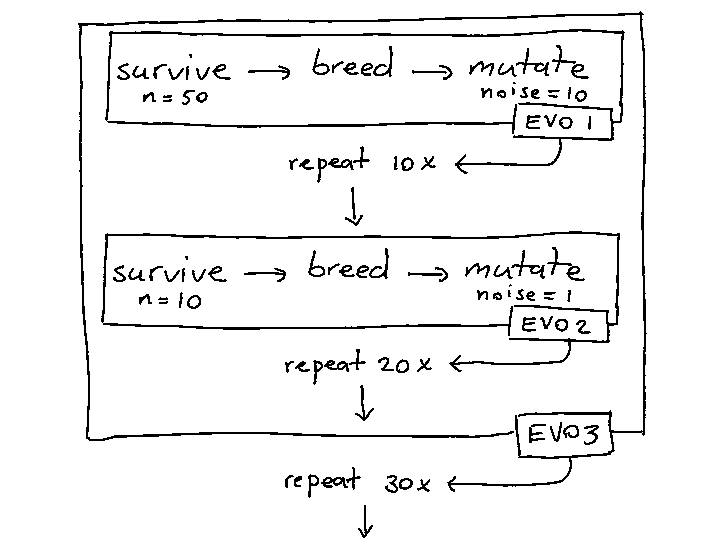 survive → breed → mutate
n = 50 noise = 10
EVO 1
repeat 10x ←
↓
survive → breed → mutate
n = 10 noise = 1
EVO 2
repeat 20x ←
↓
EVO3
repeat 30x ←
↓